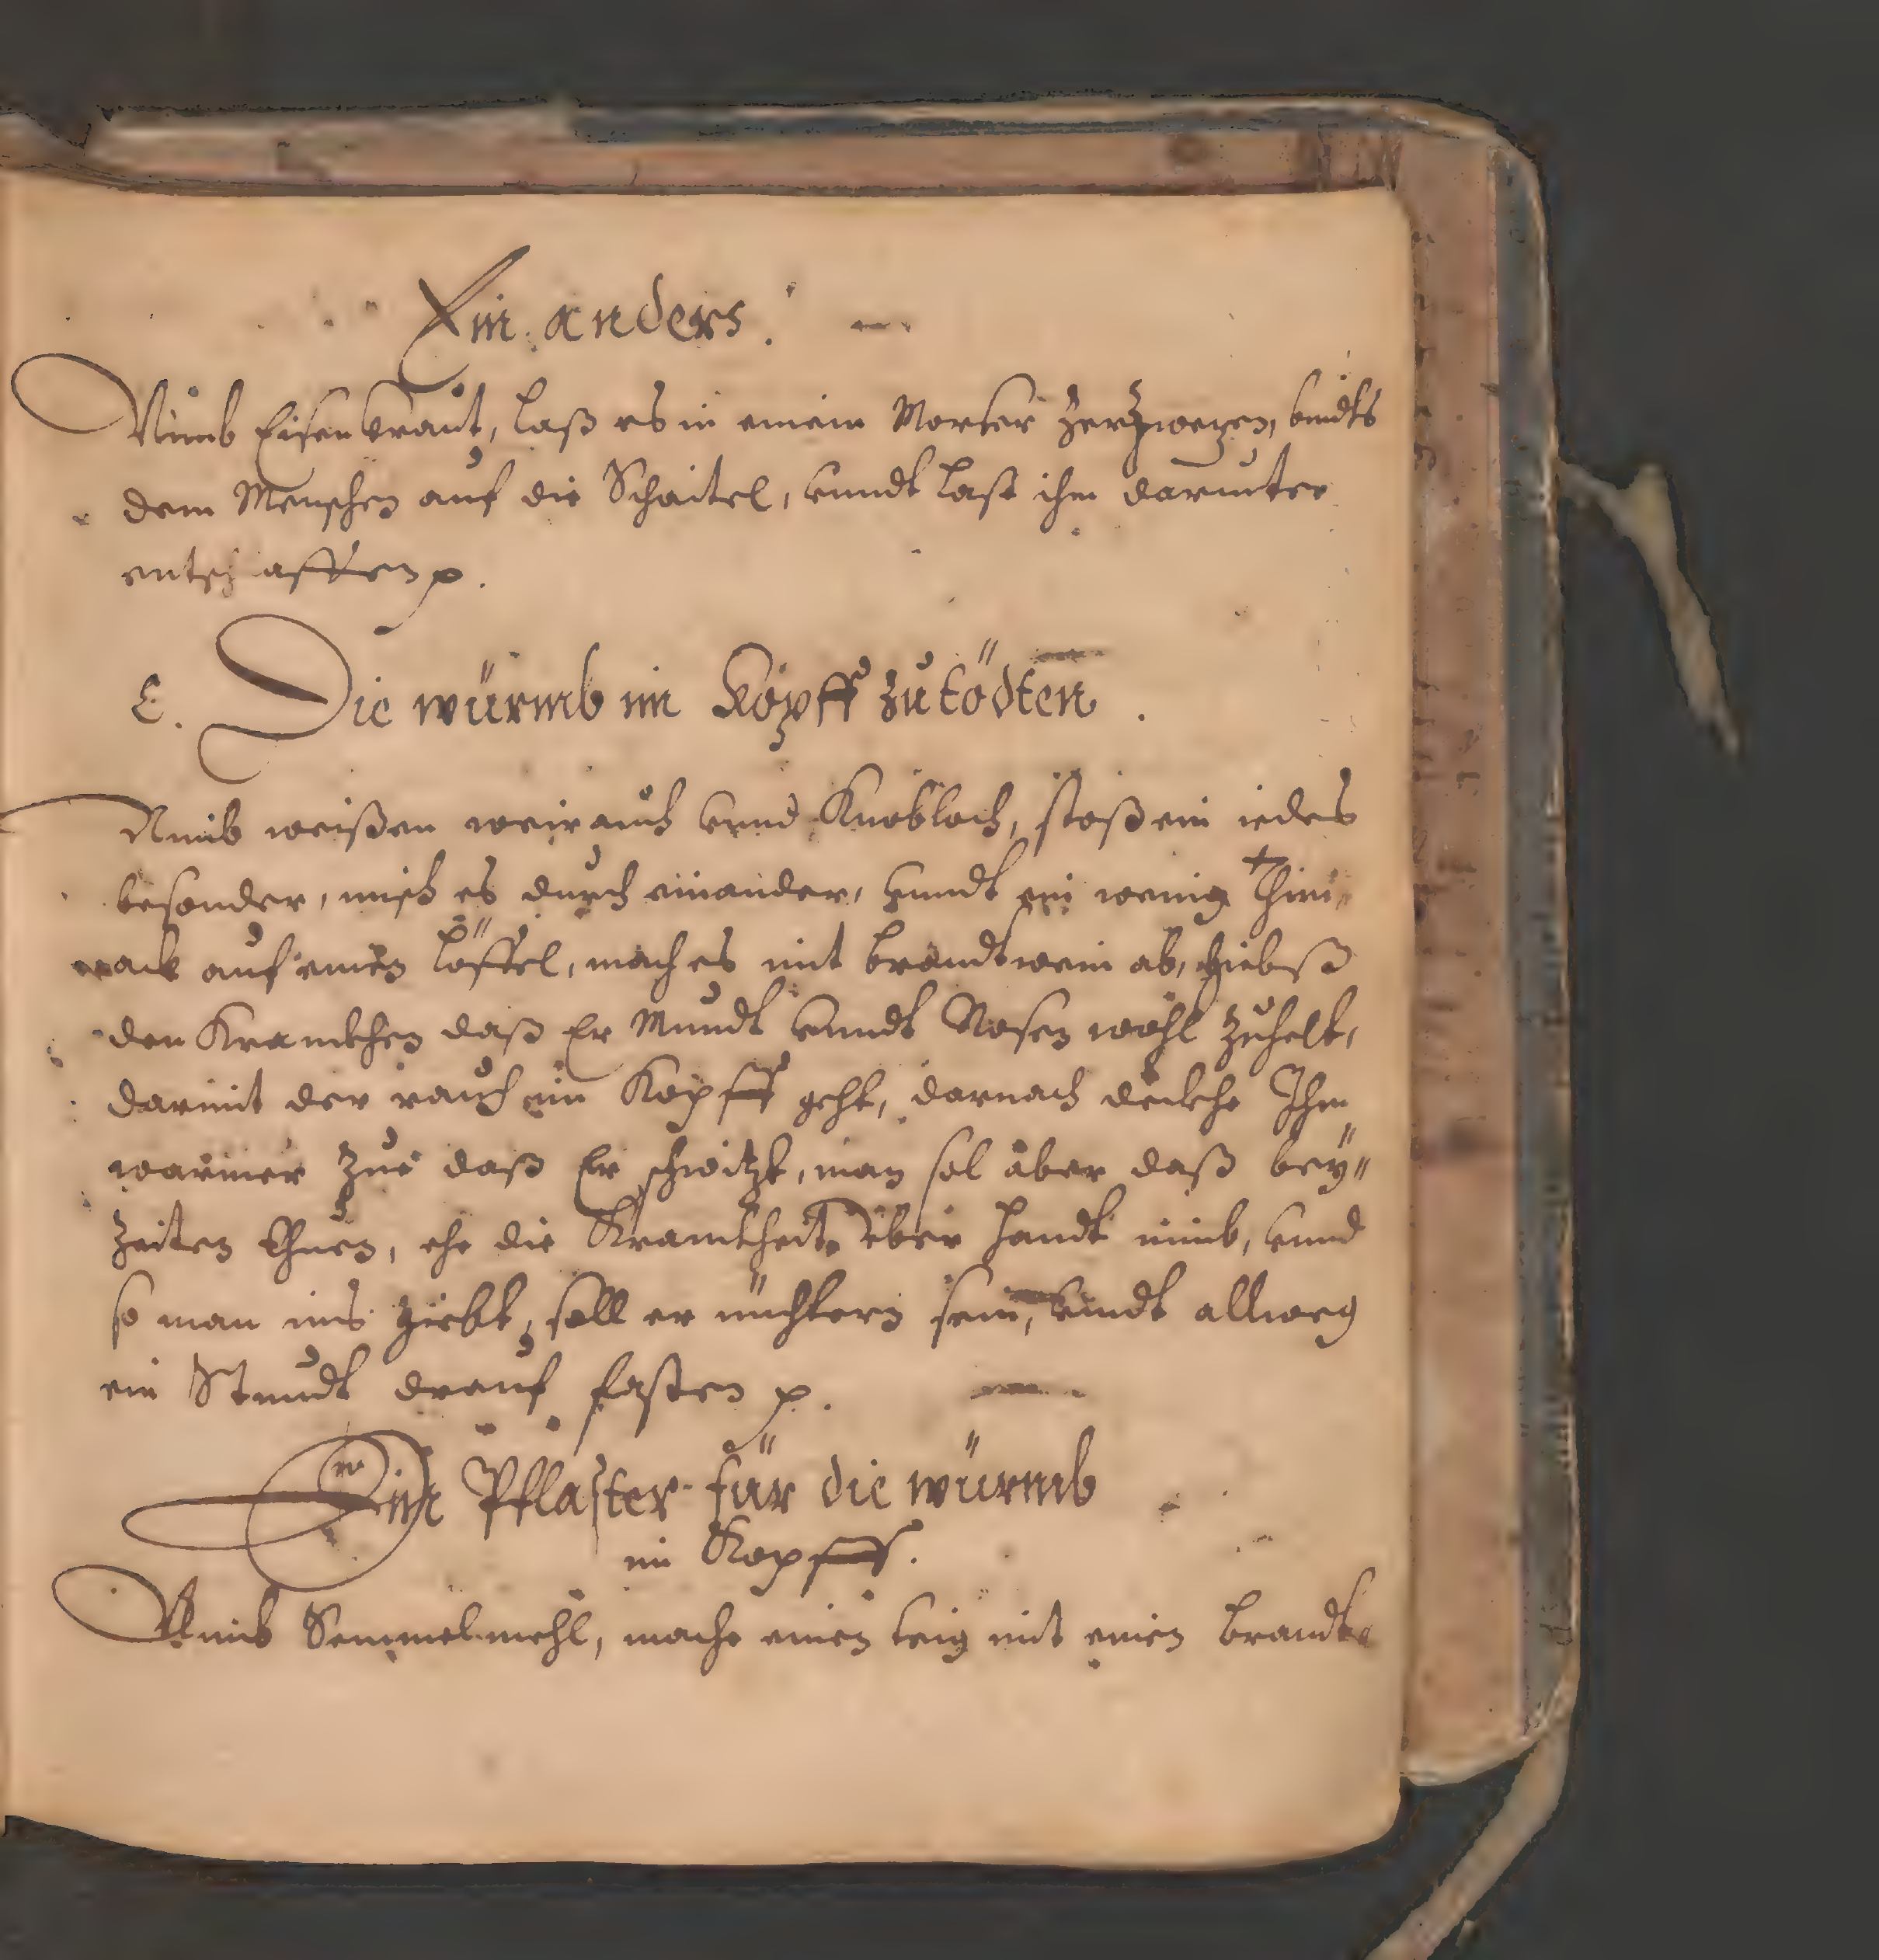 Ein anders.
Nimb Eisenkraut, laß es in einem Morser zerzwegen, bindts
dem Menschen auf die Schaitel, vnndt laß ihn darunter
entschlaffen p.
C. Die würmb im Kopff zu tödten.
Nimb weißen weirauch vnnd Knobloch, stoß ein iedes
besonder, misch es durch einander, vnndt ein wenig Thiri„
ack auf einen löffel, mach es mit brandtwein ab, giebß
den Kranckhen daß Er Mundt vnndt Nasen wohl zuhelt,
darmit der rauch im Kopff geht, darnach deckhe Ihn
warmer zue daß Er schwitzt, man sol aber daß bey„
zeiten thuen, ehe die Kranckheit vber handt nimb, vnnd
so man ins giebt, soll er nüchtern sein, vnndt allweg
ein Stundt drauf fasten p.
Ein Pflaster für die würmb
im Kopff.
Nimb Semmelmehl, mache einen teig mit einen brandt